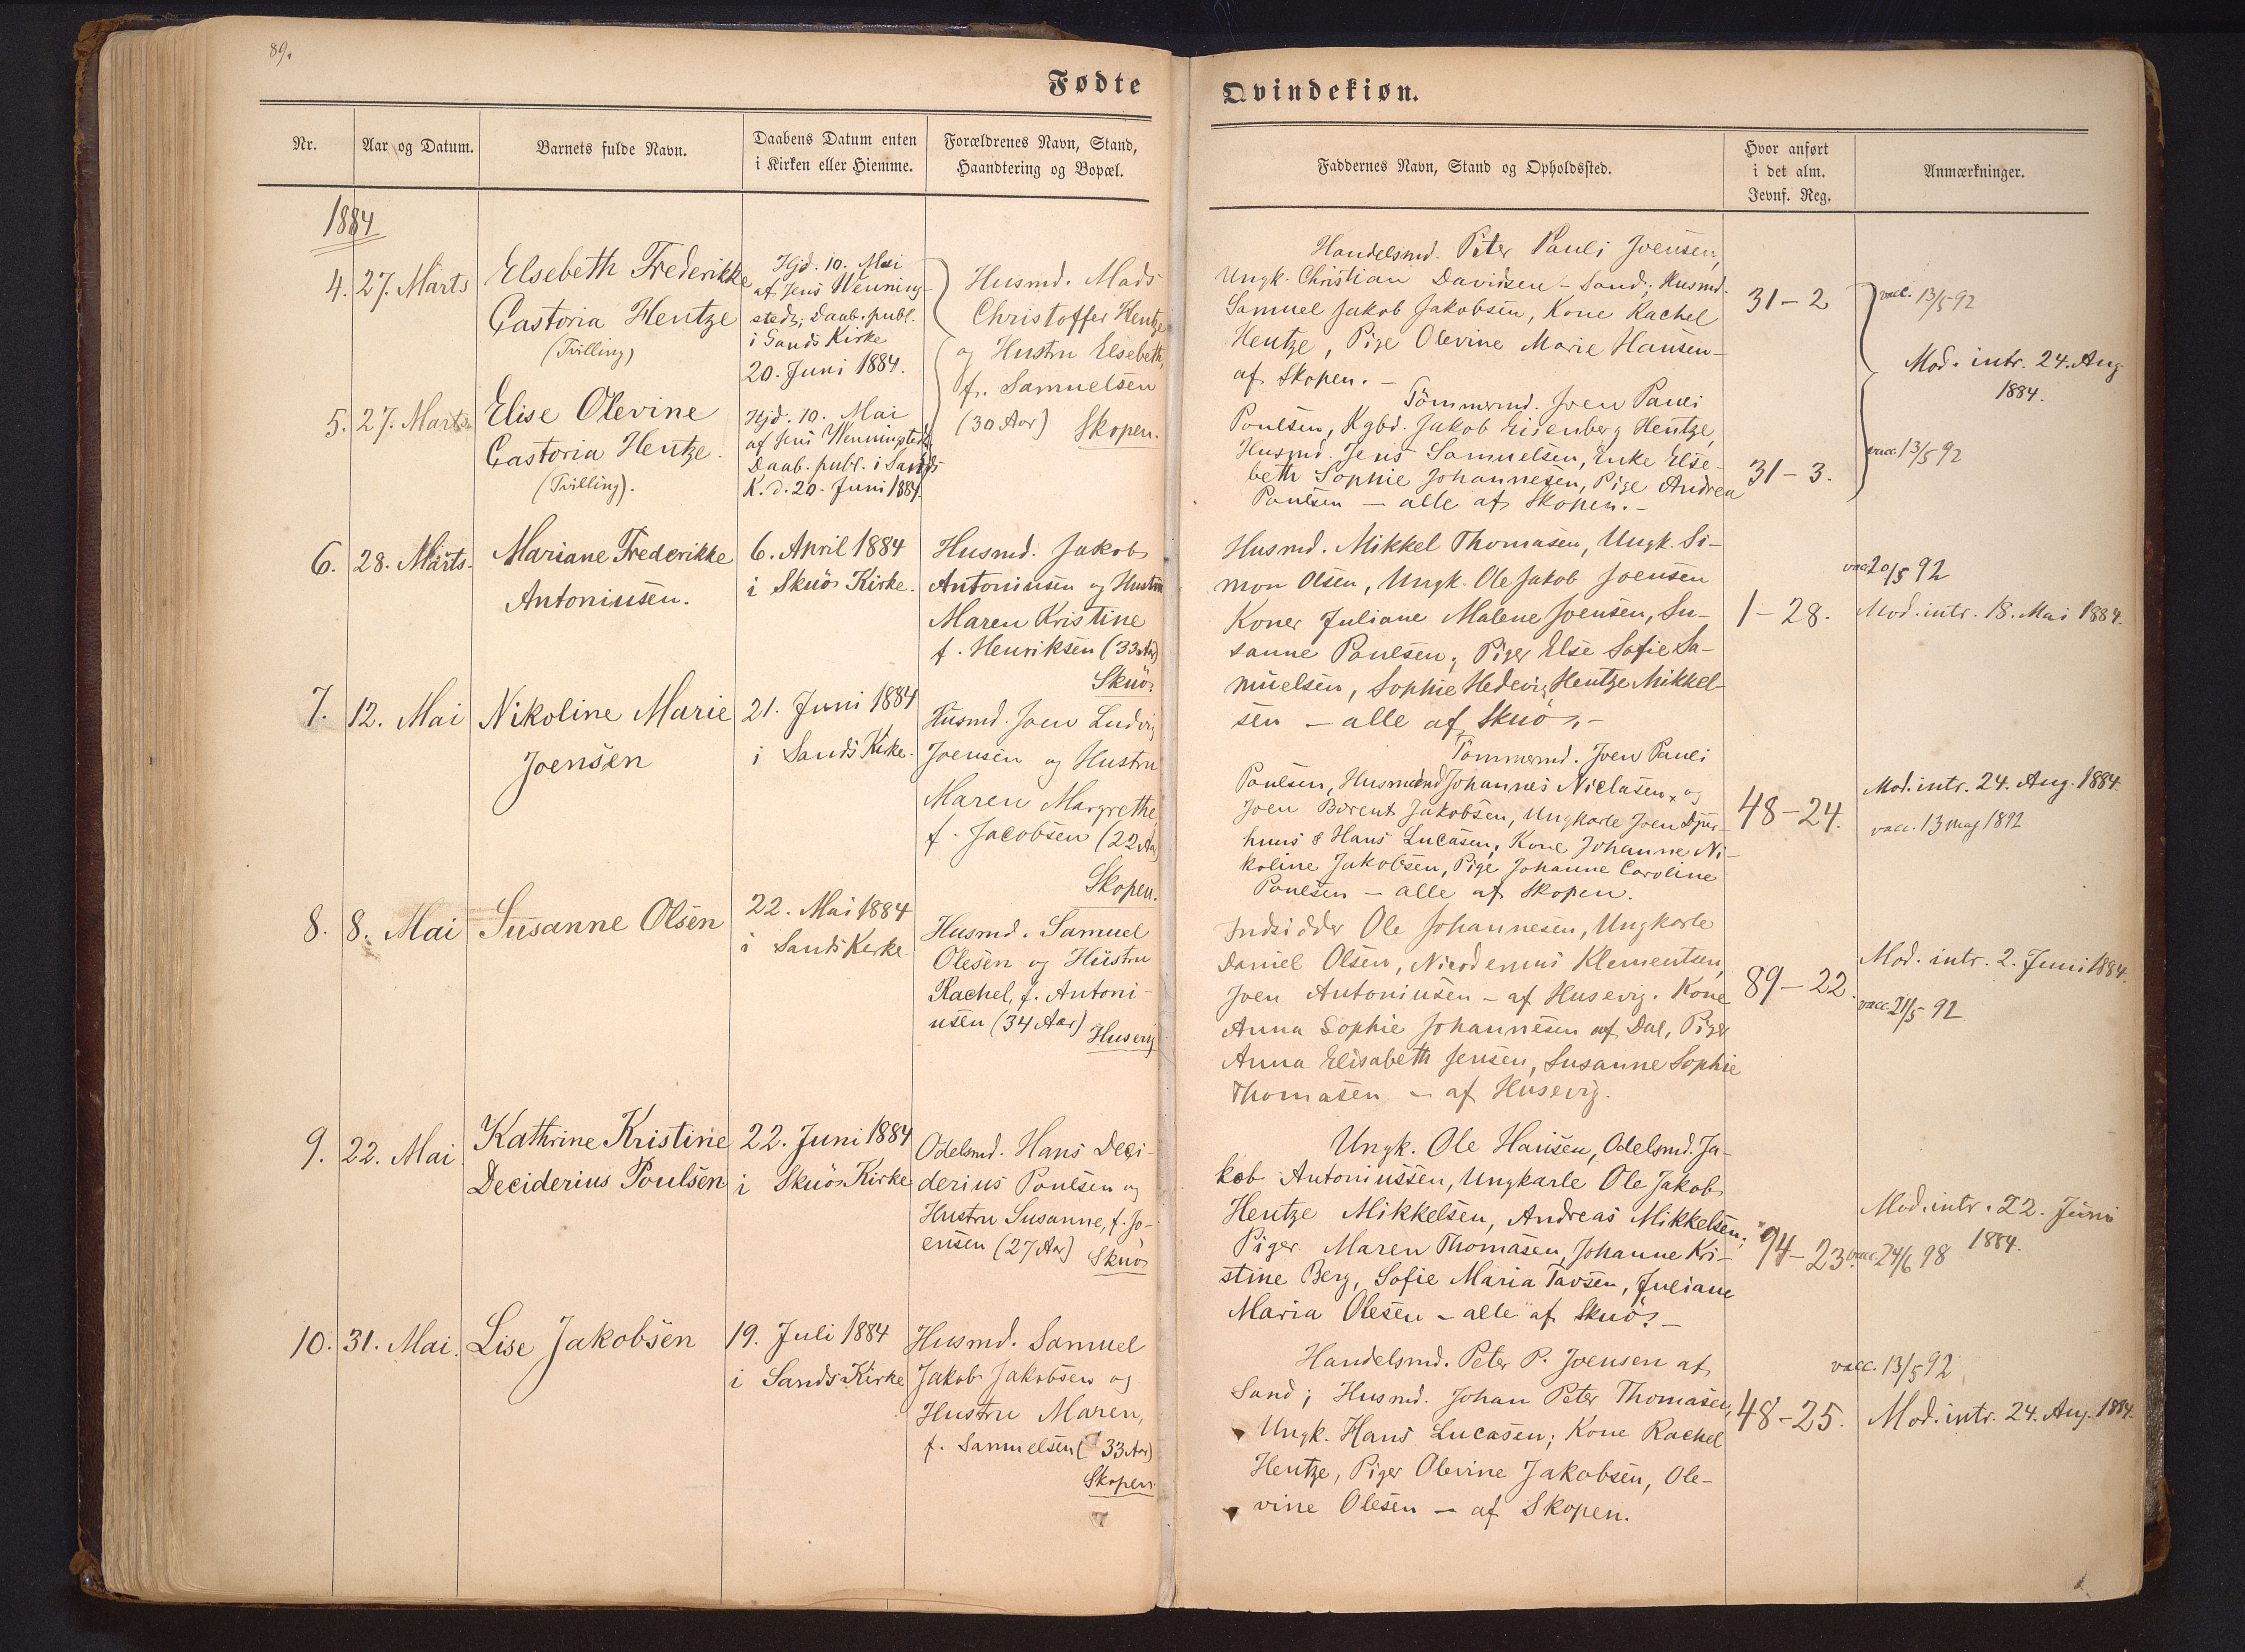 89.
Fødte
Nr.
Aar og Datum.
Barnets fulde Navn.
Daabens Datum enten
i Kirken eller Hiemme.
Forældrenes Navn, Stand,
Haandtering og Bopæl.
1884
4.
27. Marts
Elsebeth Frederikke
Castoria Hentze
(Tvilling)
Hjd. 10. Mai
af Jens Wenning-
stedt; Daab. publ.
i Sands Kirke
20. Juni 1884.
Husmd. Mads
Christoffer Hentze
og Hustru Elsebeth,
f. Samuelsen
(30 Aar) Skopen.
5.
27. Marts
Elise Olevine
Castoria Hentze.
(Tvilling).
Hjd. 10. Mai
af Jens Wenningstedt
Daab. publ. i Sands
K. d. 20. Juni 1884.
6.
28. Marts.
Mariane Frederikke
Antoniusen.
6. April 1884
i Skuö Kirke.
Husmd. Jakob
Antoniusen og Hustru
Maren Kristine
f. Henriksen (33 Aar)
Skuö.
7.
12. Mai
Nikoline Marie
Joensen
21. Juni 1884
i Sands Kirke.
Husmd. Joen Ludvig
Joensen og Hustru
Maren Margrethe,
f. Jacobsen (22 Aar)
Skopen.
8.
8. Mai
Susanne Olsen
22. Mai 1884
i Sands Kirke
Husmd. Samuel
Olesen og Hustru
Rachel, f. Antoni-
usen (34 Aar)
Husevig
9.
22. Mai.
Kathrine Kristine
Deciderius Poulsen
22. Juni 1884
i Skuö Kirke
Odelsmd. Hans Deci-
derius Poulsen og
Hustru Susanne, f. Jo-
ensen (27 Aar) Skuö
10.
31. Mai.
Lise Jakobsen
19. Juli 1884
i Sands Kirke
Husmd. Samuel
Jakob Jakobsen og
Hustru Maren,
f. Samuelsen (33 Aar)
Skopen.
Qvindekiøn.
Faddernes Navn, Stand og Opholdssted.
Hvor anført
i det alm.
Jevnf. Reg.
Anmærkninger.
Handelsmd. Peter Pauli Joensen,
Ungk. Christian Davidsen - Sand; Husmd.
Samuel Jakob Jakobsen, Kone Rachel
Hentze, Pige Olevine Marie Hansen -
af Skopen. -
31-2
vacc. 13/5 92
Mod. intr. 24. Aug
1884.
Tömmermd. Joen Pauli
Poulsen, Kgbd. Jakob Eisenberg Hentze,
Husmd. Jens Samuelsen, Enke Else-
beth Sophie Johannesen, Pige Andrea
Poulsen - alle af Skopen. -
31-3.
vacc. 13/5 92
Husmd. Mikkel Thomasen, Ungk. Si-
mon Olsen, Ungk. Ole Jakob Joensen
Koner Juliane Malene Joensen, Su-
sanne Poulsen; Piger Else Sofie Sa-
muelsen, Sophie Hedevig Hentze Mikkel-
sen - alle af Skuö. -
1-28.
vacc 20/5 92
Mod. intr. 18. Mai 1884.
Tömmermd. Joen Pauli
Poulsen, Husmænd Johannes Niclasen, og
Joen Berent Jakobsen, Ungkarle Joen Djur-
huus & Hans Lucasen; Kone Johanne Ni-
koline Jakobsen, Pige Johanne Caroline
Poulsen - alle af Skopen.
48-24.
Mod. intr. 24. Aug. 1884.
vacc. 13 maj 1892
Indsidder Ole Johannesen, Ungkarle
Daniel Olsen, Nicodemus Klementsen,
Joen Antoniusen - af Husevig. Kone
Anna Sophie Johannesen af Dal, Piger
Anna Elisabeth Jensen, Susanne Sophie
Thomasen - af Husevig.
89-22.
Mod. intr. 2. Juni 1884.
vacc 21/5 92
Ungk. Ole Hansen, Odelsmd. Ja-
kob Antoniussen, Ungkarle Ole Jakob
Hentze Mikkelsen, Andreas Mikkelsen;
Piger Maren Thomasen, Johanne Kri-
stine Berg, Sofie Maria Tavsen, Juliane
Maria Olesen - alle af Skuö. -
94-23.
Mod. intr. 22. Juni
1884.
vacc. 24/6 98
Handelsmd. Peter P. Joensen af
Sand; Husmd. Johan Peter Thomasen,
Ungk. Hans Lucasen; Kone Rachel
Hentze, Piger Olevine Jakobsen, Ole-
vine Olesen - af Skopen.
48-25.
vacc. 13/5 92
Mod. intr. 24. Aug. 1884.